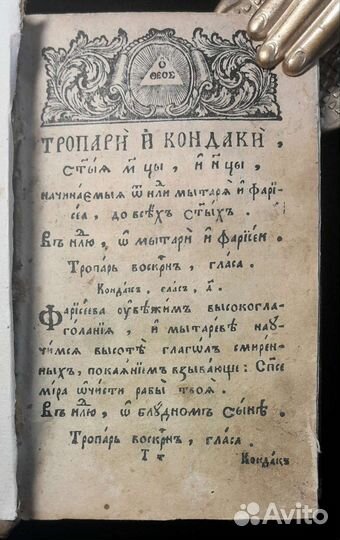 Ѻ
ѲЕОС
ТРОПАРЍ И҆ КОНДАКЍ,
ст҃ы́ѧ м҃цы, и҆ н҃цы,
начина́емыѧ ѿ нⷣли мытарѧ̀ и҆ фарїсе́а, до всѣ́хъ ст҃ы́хъ.
Въ нⷣлю, ѡ҆ мытарѝ и҆ фарїсе́и.
Тропа́рь воскр҃нъ, гла́са.
Конда́къ, гла́съ, д҃.
Фарїсе́ева оу҆бѣжи́мъ высокогла-
го́ланїѧ, и҆ мытаре́вѣ нау-
чи́мсѧ высотѣ̀ глагѡ́лъ смире́н-
ныхъ, покаѧ́нїемъ взыва́юще: Сп҃се
мі́ра ѡ҆чи́сти рабы̀ твоѧ̀.
Въ нⷣлю, ѡ҆ блу́дномъ сы́нѣ.
Тропа́рь воскр҃нъ, гла́са.
Т т
Конда́къ
Avito